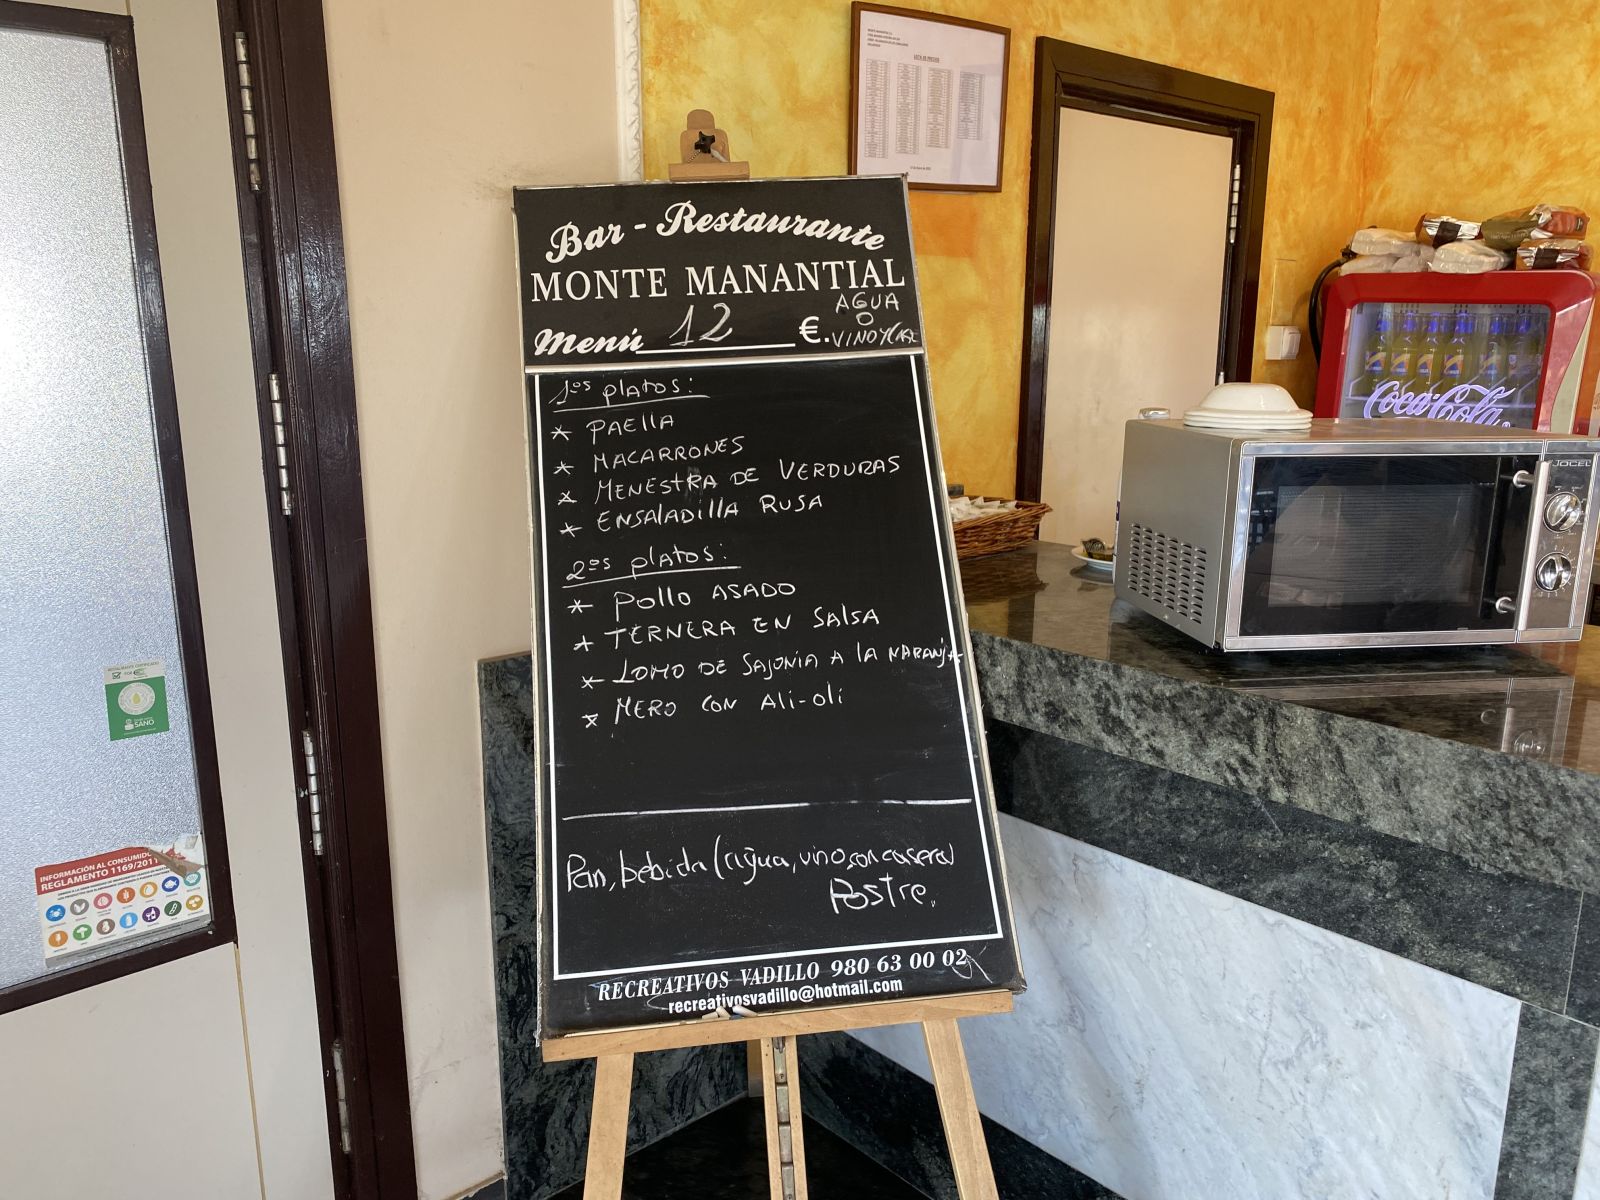 Bar - Restaurante
MONTE MANANTIAL
Menú 12 €.
AGUA
O
VINO Y CASE
1ºs platos:
* PAEllA
* MACARRONES
* MENESTRA DE VERDURAS
* ENSALADillA RUSA
2ºs platos:
* Pollo ASADO
* TERNERA EN SALSA
* LOMO DE SAJONIA A lA NARANJA
* MERO CON Ali-oli
Pan, bebida (agua, vino con casera)
Postre.
RECREATIVOS VADILLO 980 63 00 02
recreativosvadillo@hotmail.com
LISTA DE PRECIOS
Coca-Cola
JOCEL
SANO
INFORMACIÓN AL CONSUMIDO
REGLAMENTO 1169/2011